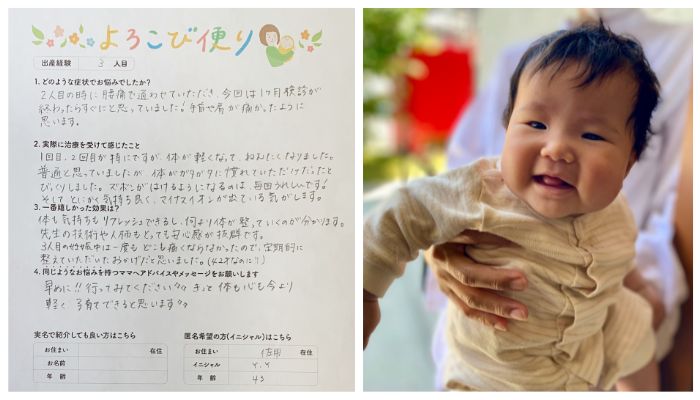 よろこび便り
出産経験 3 人目
1. どのような症状でお悩みでしたか?
2人目の時に腰痛で通わせていただき、今回は1ヶ月検診が
終わったらすぐにと思っていました!手首や肩が痛かったように
思います。
2. 実際に治療を受けて感じたこと
1回目、2回目が特にですが、体が軽くなって、ねむたくなりました。
普通と思っていましたが、体がガタガタに慣れていただけだったと
びっくりしました。ズボンがはけるようになるのは、毎回うれしいです!
そして、とにかく気持ち良く、マイナスイオンが出ている気がします。
3. 一番嬉しかった効果は?
体も気持ちもリフレッシュできるし、何より体が整っていくのが分かります。
先生の技術や人柄もとっても安心感が抜群です。
3人目の妊娠中は一度もどこも痛くならなかったので、定期的に
整えていただいたおかげだと思いました。(42才なのに!)
4. 同じようなお悩みを持つママへアドバイスやメッセージをお願いします
早めに!!行ってみてください きっと体も心も今より
軽く 子育てできると思います
実名で紹介しても良い方はこちら
お住まい 在住
お名前
年 齢
匿名希望の方(イニシャル)はこちら
お住まい 佐用 在住
イニシャル Y.Y
年 齢 43